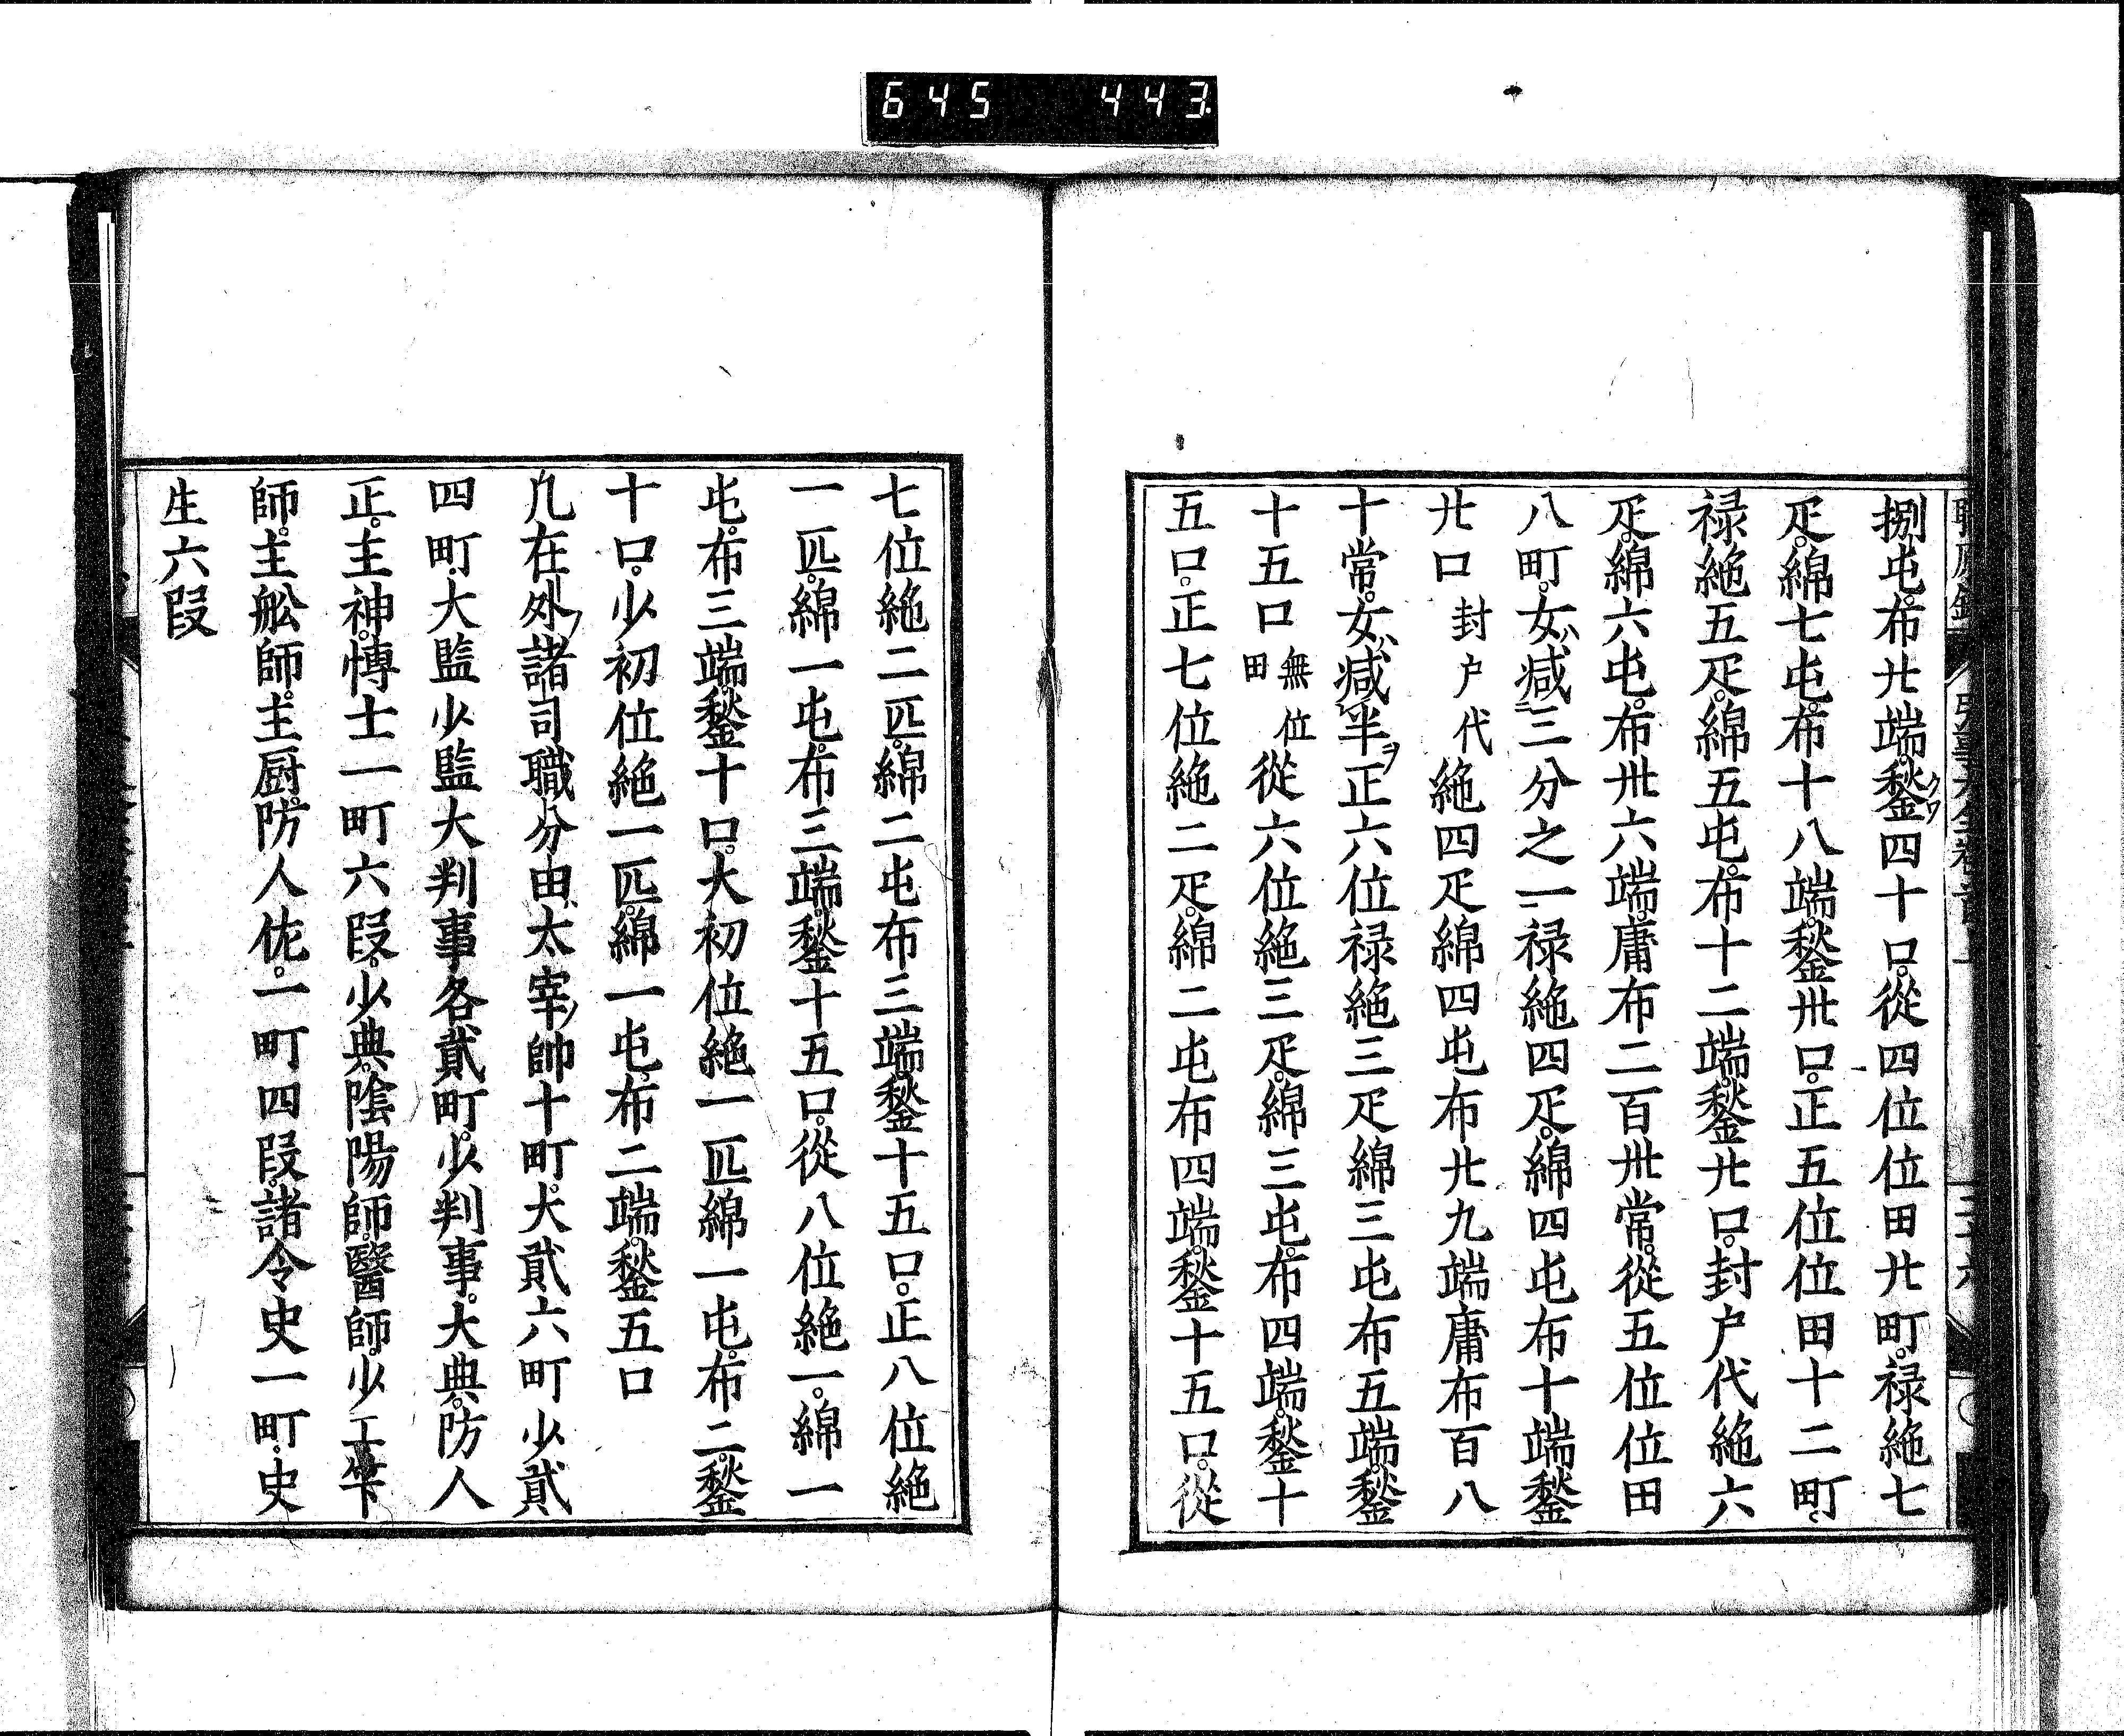 645 443
捌屯。布廿端。鍫四十口。從四位位田廿町。禄絁七
疋。綿七屯。布十八端。鍫卅口。正五位位田十二町。
禄絁五疋。綿五屯。布十二端。鍫廿口。封户代絁六
疋。綿六屯。布卅六端。庸布二百卅常。從五位位田
八町。女ハ减三分之一禄絁四疋。綿四屯布十端鍫
廿口封户代絁四疋綿四屯布廿九端庸布百八
十常。女ハ减半ヲ正六位禄絁三疋綿三屯布五端。鍫
十五口無位田從六位絁三疋。綿三屯。布四端。鍫十
五口。正七位絁二疋。綿二屯布四端。鍫十五口。從
七位絁二匹。綿二屯布三端。鍫十五口。正八位絁
一匹。綿一屯。布三端。鍫十五口。從八位絁一。綿一
屯。布三端。鍫十口。大初位絁一匹綿一屯。布二。鍫
十口。少初位絁一匹。綿一屯。布二端。鍫五口
凢在外ノ諸司職分由太宰ノ帥十町。大貳六町少貳
四町大監少監大判事各貳町。少判事。大典。防人
正。主神。愽士一町六段。少典。陰陽師。醫師。少工筭
師。主舩師。主厨。防人佐。一町四段。諸令史一町。史
生六段